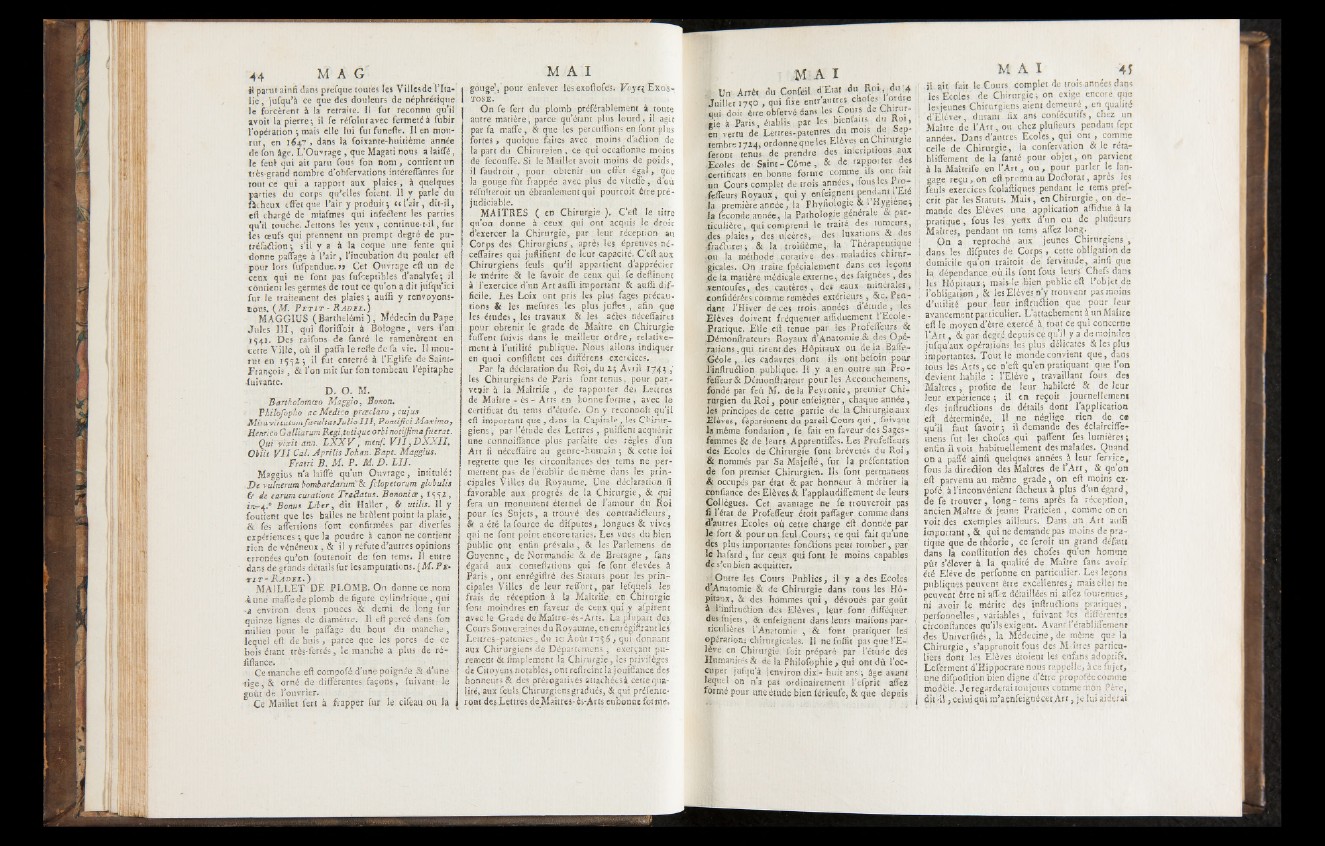 44 M A G
il parut ainsi dans presque toutes les Villes de l'Ita-
lie, jusqu'à ce que des douleurs de néphrétique
le forcèrent à la retraite. Il fut reconnu qu'il
avoit la pierre; il se résolut avec fermeté à subir
l'opération; mais elle lui fut funeste. Il en mou-
rut, en 1647, dans la soixante-huitième année
de son âge. L'Ouvrage, que Magati nous a laissé,
le seul qui ait paru sous son nom, contient un
très-grand nombre d'observations intéressantes sur
tout ce qui a rapport aux plaies, à quelques
parties du corps qu'elles soient. Il y parle du
fâcheux effet que l'air y produit; «l'air, dit-il,
est chargé de miasmes qui infectent les parties
qu'il touche. Jetons les yeux, continue-t-il, sur
les œufs qui prennent un prompt degré de pu-
tréfaction; s'il y a à la coque une fente qui
donne passage à l'air, l'incubation du poulet est
pour lors suspendue.» Cet Ouvrage est un de
ceux qui ne sont pas susceptibles d'analyse; il
contient les germes de tout ce qu'on a dit jusqu'ici
sur le traitement des plaies; aussi y renvoyons-
nous. (M. PETIT-RADEL.)
MAGGIUS (Barthelémi), Médecin du Pape
Jules III, qui florissoit à Bologne, vers l'an
1541. Des raisons de santé le ramenèrent en
cette Ville, où il passa le reste de sa vie. Il mou-
rut en 1552; il fut enterré à l'Eglise de Saint-
François, & l'on mit sur son tombeau l'épitaphe
suivante.
D. O. M.
Bartholomæo Maggio, Bonon.
Philosopho ac Medico præclaro, cujus
Mira virtutum facultas Julio III, Pontifici Maximo,
Henrico Galliarum Regi, totique orbi notissima fuerat.
Qui vixit ann. LXXV, mens. VII, D. XXII,
Obiit VII Cal. Aprilis Johan. Bapt. Maggius.
Fratri B. M. P. M. D. LII.
Maggius n'a laissé qu'un Ouvrage, intitulé:
De vulnerum bombardarum & sclopetorum globulis
& de earum curatione Tractatus. Bononiæ, 1552,
in-4.° Bonus Liber, dit Haller, & utilis. Il y
soutient que les balles ne brûlent point la plaie,
& ses assertions sont confirmées par diverses
expériences; que la poudre à canon ne contient
rien de vénéneux, & il y refute d'autres opinions
erronées qu'on soutenoit de son tems. Il entre
dans de grands détails sur les amputations. (M. PE-
TIT-RADEL.)
MAILLET DE PLOMB. On donne ce nom
à une masse de plomb de figure cylindrique, qui
a environ deux pouces & demi de long sur
quinze lignes de diamètre. Il est percé dans son
milieu pour le passage du bout du manche,
lequel est de buis, parce que les pores de ce
bois étant très-serrés, le manche a plus de ré-
sistance.
Ce manche est composé d'une poignée & d'une
tige, & orné de différentes façons, suivant le
goût de l'ouvrier.
Ce Maillet sert à frapper sur le ciseau ou la
M A I
gouge, pour enlever les exostoses. Voyez EXOS-
TOSE.
On se sert du plomb préférablement à toute
autre matière, parce qu'étant plus lourd, il agit
par sa masse, & que les percussions en sont plus
fortes, quoique faites avec moins d'action de
la part du Chirurgien, ce qui occasionne moins
de secousse. Si le Maillet avoit moins de poids,
il faudroit, pour obtenir un effet égal, que
la gouge fût frappée avec plus de vitesse, d'où
résulteroit un ébranlement qui pourroit être pré-
judiciable.
MAITRES (en Chirurgie). C'est le titre
qu'on donne à ceux qui ont acquis le droit
d'exercer la Chirurgie, par leur réception au
Corps des Chirurgiens, après les épreuves né-
cessaires qui justifient de leur capacité. C'est aux
Chirurgiens seuls qu'il appartient d'apprécier
le mérite & le savoir de ceux qui se destinent
à l'exercice d'un Art aussi important & aussi dif-
ficile. Les Loix ont pris les plus sages précau-
tions & les mesures les plus justes, afin que
les études, les travaux & les actes nécessaires
pour obtenir le grade de Maître en Chirurgie
fussent suivis dans le meilleur ordre, relative-
ment à l'utilité publique. Nous allons indiquer
en quoi consistent ces différens exercices.
Par la déclaration du Roi, du 23 Avril 1743,
les Chirurgiens de Paris sont tenus, pour par-
venir à la Maîtrise, de rapporter des Lettres
de Maître-ès-Arts en bonne forme, avec le
certificat du tems d'étude. On y reconnoît qu'il
est important que, dans la Capitale, les Chirur-
giens, par l'étude des Lettres, puissent acquérir
une connoissance plus parfaite des règles d'un
Art si nécessaire au genre-humain; & cette loi
regrette que les circonstances des tems ne per-
mettent pas de l'établir de même dans les prin-
cipales Villes du Royaume. Une déclaration si
favorable aux progrès de la Chirurgie, & qui
sera un monument éternel de l'amour du Roi
pour ses Sujets, a trouvé des contradicteurs,
& a été la source de disputes, longues & vives
qui ne sont point encore taries. Les vues du bien
public ont enfin prévalu, & les Parlemens de
Guyenne, de Normandie & de Bretagne, sans
égard aux contestations qui se sont élevées à
Paris, ont enrégistré des Statuts pour les prin-
cipales Villes de leur ressort, par lesquels les
frais de réception à la Maîtrise en Chirurgie
sont moindres en faveur de ceux qui y aspirent
avec le Grade de Maître-ès-Arts. La plupart des
Cours Souveraines du Royaume, en enrégistrant les
Lettres-patentes, du 10 Août 1756, qui donnant
aux Chirurgiens de Départemens, exerçant pu-
rement & simplement la Chirurgie, les privilèges
de Citoyens notables, ont restreint la jouissance des
honneurs & des prérogatives attachées à cette qua-
lité, aux seuls Chirurgiens gradués, & qui présente-
ront des Lettres de Maîtres-ès-Arts en bonne forme.
M A I
Un Arrêt du Conseil d'Etat du Roi, du 4
Juillet 1750, qui fixe entr'autres choses l'ordre
qui doit être observé dans les Cours de Chirur-
gie à Paris, établis par les bienfaits du Roi,
en vertu de Lettres-patentes du mois de Sep-
tembre 1724, ordonne que les Elèves en Chirurgie
seront tenus de prendre des inscriptions aux
Ecoles de Saint-Côme, & de rapporter des
certificats en bonne forme comme ils ont fait
un Cours complet de trois années, sous les Pro-
fesseurs Royaux, qui y enseignent pendant l'Eté
la première année, la Physiologie & l'Hygiène;
la seconde année, la Pathologie générale & par-
ticulière, qui comprend le traité des tumeurs,
des plaies, des ulcères, des luxations & des
fractures; & la troisième, la Thérapeutique
ou la méthode curative des maladies chirur-
gicales. On traite spécialement dans ces leçons
de la matière médicale externe, des saignées, des
ventouses, des cautères, des eaux minérales,
considérées comme remèdes extérieurs, &c. Pen-
dant l'Hiver de ces trois années d'étude, les
Elèves doivent fréquenter assiduement l'Ecole-
Pratique. Elle est tenue par les Professeurs &
Démonstrateurs Royaux d'Anatomie & des Opé-
rations, qui tirent des Hôpitaux ou de la Basse-
Géole, les cadavres dont ils ont besoin pour
l'instruction publique. Il y a en outre un Pro-
fesseur & Démonstrateur pour les Accouchemens,
fondé par feu M. de la Peyronie, premier Chi-
rurgien du Roi, pour enseigner, chaque année,
les principes de cette partie de la Chirurgie aux
Elèves, séparément du pareil Cours qui, suivant
la même fondation, se fait en faveur des Sages-
femmes & de leurs Apprentisses. Les Professeurs
des Ecoles de Chirurgie sont brévetés du Roi,
& nommés par Sa Majesté, sur la présentation
de son premier Chirurgien. Ils sont permanens
& occupés par état & par honneur à mériter la
confiance des Elèves & l'applaudissement de leurs
Collègues. Cet avantage ne se trouveroit pas
si l'état de Professeur étoit passager comme dans
d'autres Ecoles où cette charge est donnée par
le sort & pour un seul Cours; ce qui fait qu'une
des plus importantes fonctions peut tomber, par
le hasard, sur ceux qui sont le moins capables
de s'en bien acquitter.
Outre les Cours Publics, il y a des Ecoles
d'Anatomie & de Chirurgie dans tous les Hô-
pitaux, & des hommes qui, dévoués par goût
à l'instruction des Elèves, leur font disséquer
des sujets, & enseignent dans leurs maisons par-
ticulières l'Anatomie, & font pratiquer les
opérations chirurgicales. Il ne suffit pas que l'E-
lève en Chirurgie soit préparé par l'étude des
Humanités & de la Philosophie, qui ont dû l'oc-
cuper jusqu'à environ dix-huit ans; âge avant
lequel on n'a pas ordinairement l'esprit assez
formé pour une étude bien sérieuse, & que depuis
M A I 45
il ait fait le Cours complet de trois années dans
les Ecoles de Chirurgie, on exige encore que
les jeunes Chirurgiens aient demeuré, en qualité
d'Elèves, durant six ans consécutifs, chez un
Maître de l'Art, ou chez plusieurs pendant sept
années. Dans d'autres Ecoles, qui ont, comme
celle de Chirurgie, la conservation & le réta-
blissement de la santé pour objet, on parvient
à la Maîtrise en l'Art, ou, pour parler le lan-
gage reçu, on est promu au Doctorat, après les
seuls exercices scolastiques pendant le tems pres-
crit par les Statuts. Mais, en Chirurgie, on de-
mande des Elèves une application assidue à la
pratique, sous les yeux d'un ou de plusieurs
Maîtres, pendant un tems assez long.
On a reproché aux jeunes Chirurgiens,
dans les disputes de Corps, cette obligation de
domicile qu'on traitoit de servitude, ainsi que
la dépendance où ils sont sous leurs Chefs dans
les Hôpitaux; mais le bien public est l'objet de
l'obligation, & les Elèves n'y trouvent pas moins
d'utilité pour leur instruction que pour leur
avancement particulier. L'attachement à un Maître
est le moyen d'être exercé à tout ce qui concerne
l'Art, & par degré depuis ce qu'il y a de moindre
jusqu'aux opérations les plus délicates & les plus
importantes. Tout le monde convient que, dans
tous les Arts, ce n'est qu'en pratiquant que l'on
devient habile: l'Elève, travaillant sous des
Maîtres, profite de leur habileté & de leur
expérience; il en reçoit journellement
des instructions de détails dont l'application
est déterminée. Il ne néglige rien de ce
qu'il faut savoir; il demande des éclaircisse-
mens sur les choses qui passent ses lumières;
enfin il voit habituellement des malades. Quand
on a passé ainsi quelques années à leur service,
sous la direction des Maîtres de l'Art, & qu'on
est parvenu au même grade, on est moins ex-
posé à l'inconvénient fâcheux à plus d'un égard,
de se trouver, long-tems après sa réception,
ancien Maître & jeune Praticien, comme on en
voit des exemples ailleurs. Dans un Art aussi
important, & qui ne demande pas moins de pra-
tique que de théorie, ce seroit un grand défaut
dans la constitution des choses qu'un homme
pût s'élever à la qualité de Maître sans avoir
été Elève de personne en particulier. Les leçons
publiques peuvent être excellentes; mais elles ne
peuvent être ni assez détaillées ni assez soutenues,
ni avoir le mérite des instructions pratiques,
personnelles, variables, suivant les différentes
circonstances qu'ils exigent. Avant l'établissement
des Universités, la Médecine, de même que la
Chirurgie, s'apprenoit sous des Maîtres particu-
liers dont les Elèves étoient les enfans adoptifs.
Le serment d'Hippocrate nous rappelle, à ce sujet,
une disposition bien digne d'être proposée comme
modèle. Je regarderai toujours comme mon Père,
dit-il, celui qui m'a enseigné cet Art, je lui aiderai